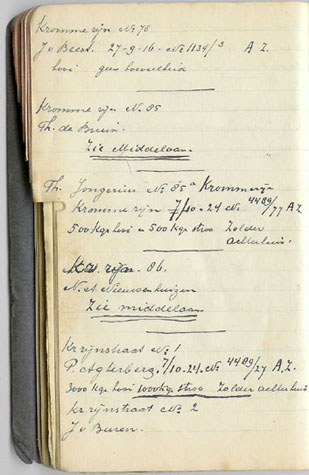 Kromme rijn No 78
J v Beest. 27-9-16. No 1134/3 A Z.
hooi geen hoeveelheid
Kromme rijn No. 85
Th. de Bruin.
Zie Middelaan.
Th. Jongerius No 85a Krommerijn
Kromme rijn 7/10-24 No 4489/77 A Z
500 kgr hooi en 500 kgr stroo Zolder
achterhuis.
Kr. rijn. 86.
N. v. Nieuwenhuizen
Zie middelaan.
Kr rijnstraat No 1
P. Agterberg. 7/10.24. No 4489/27 A. Z.
3000 kgr hooi 1000 kgr stroo Zolder achterhuis
kr rijnstraat No 2
J v Buren.